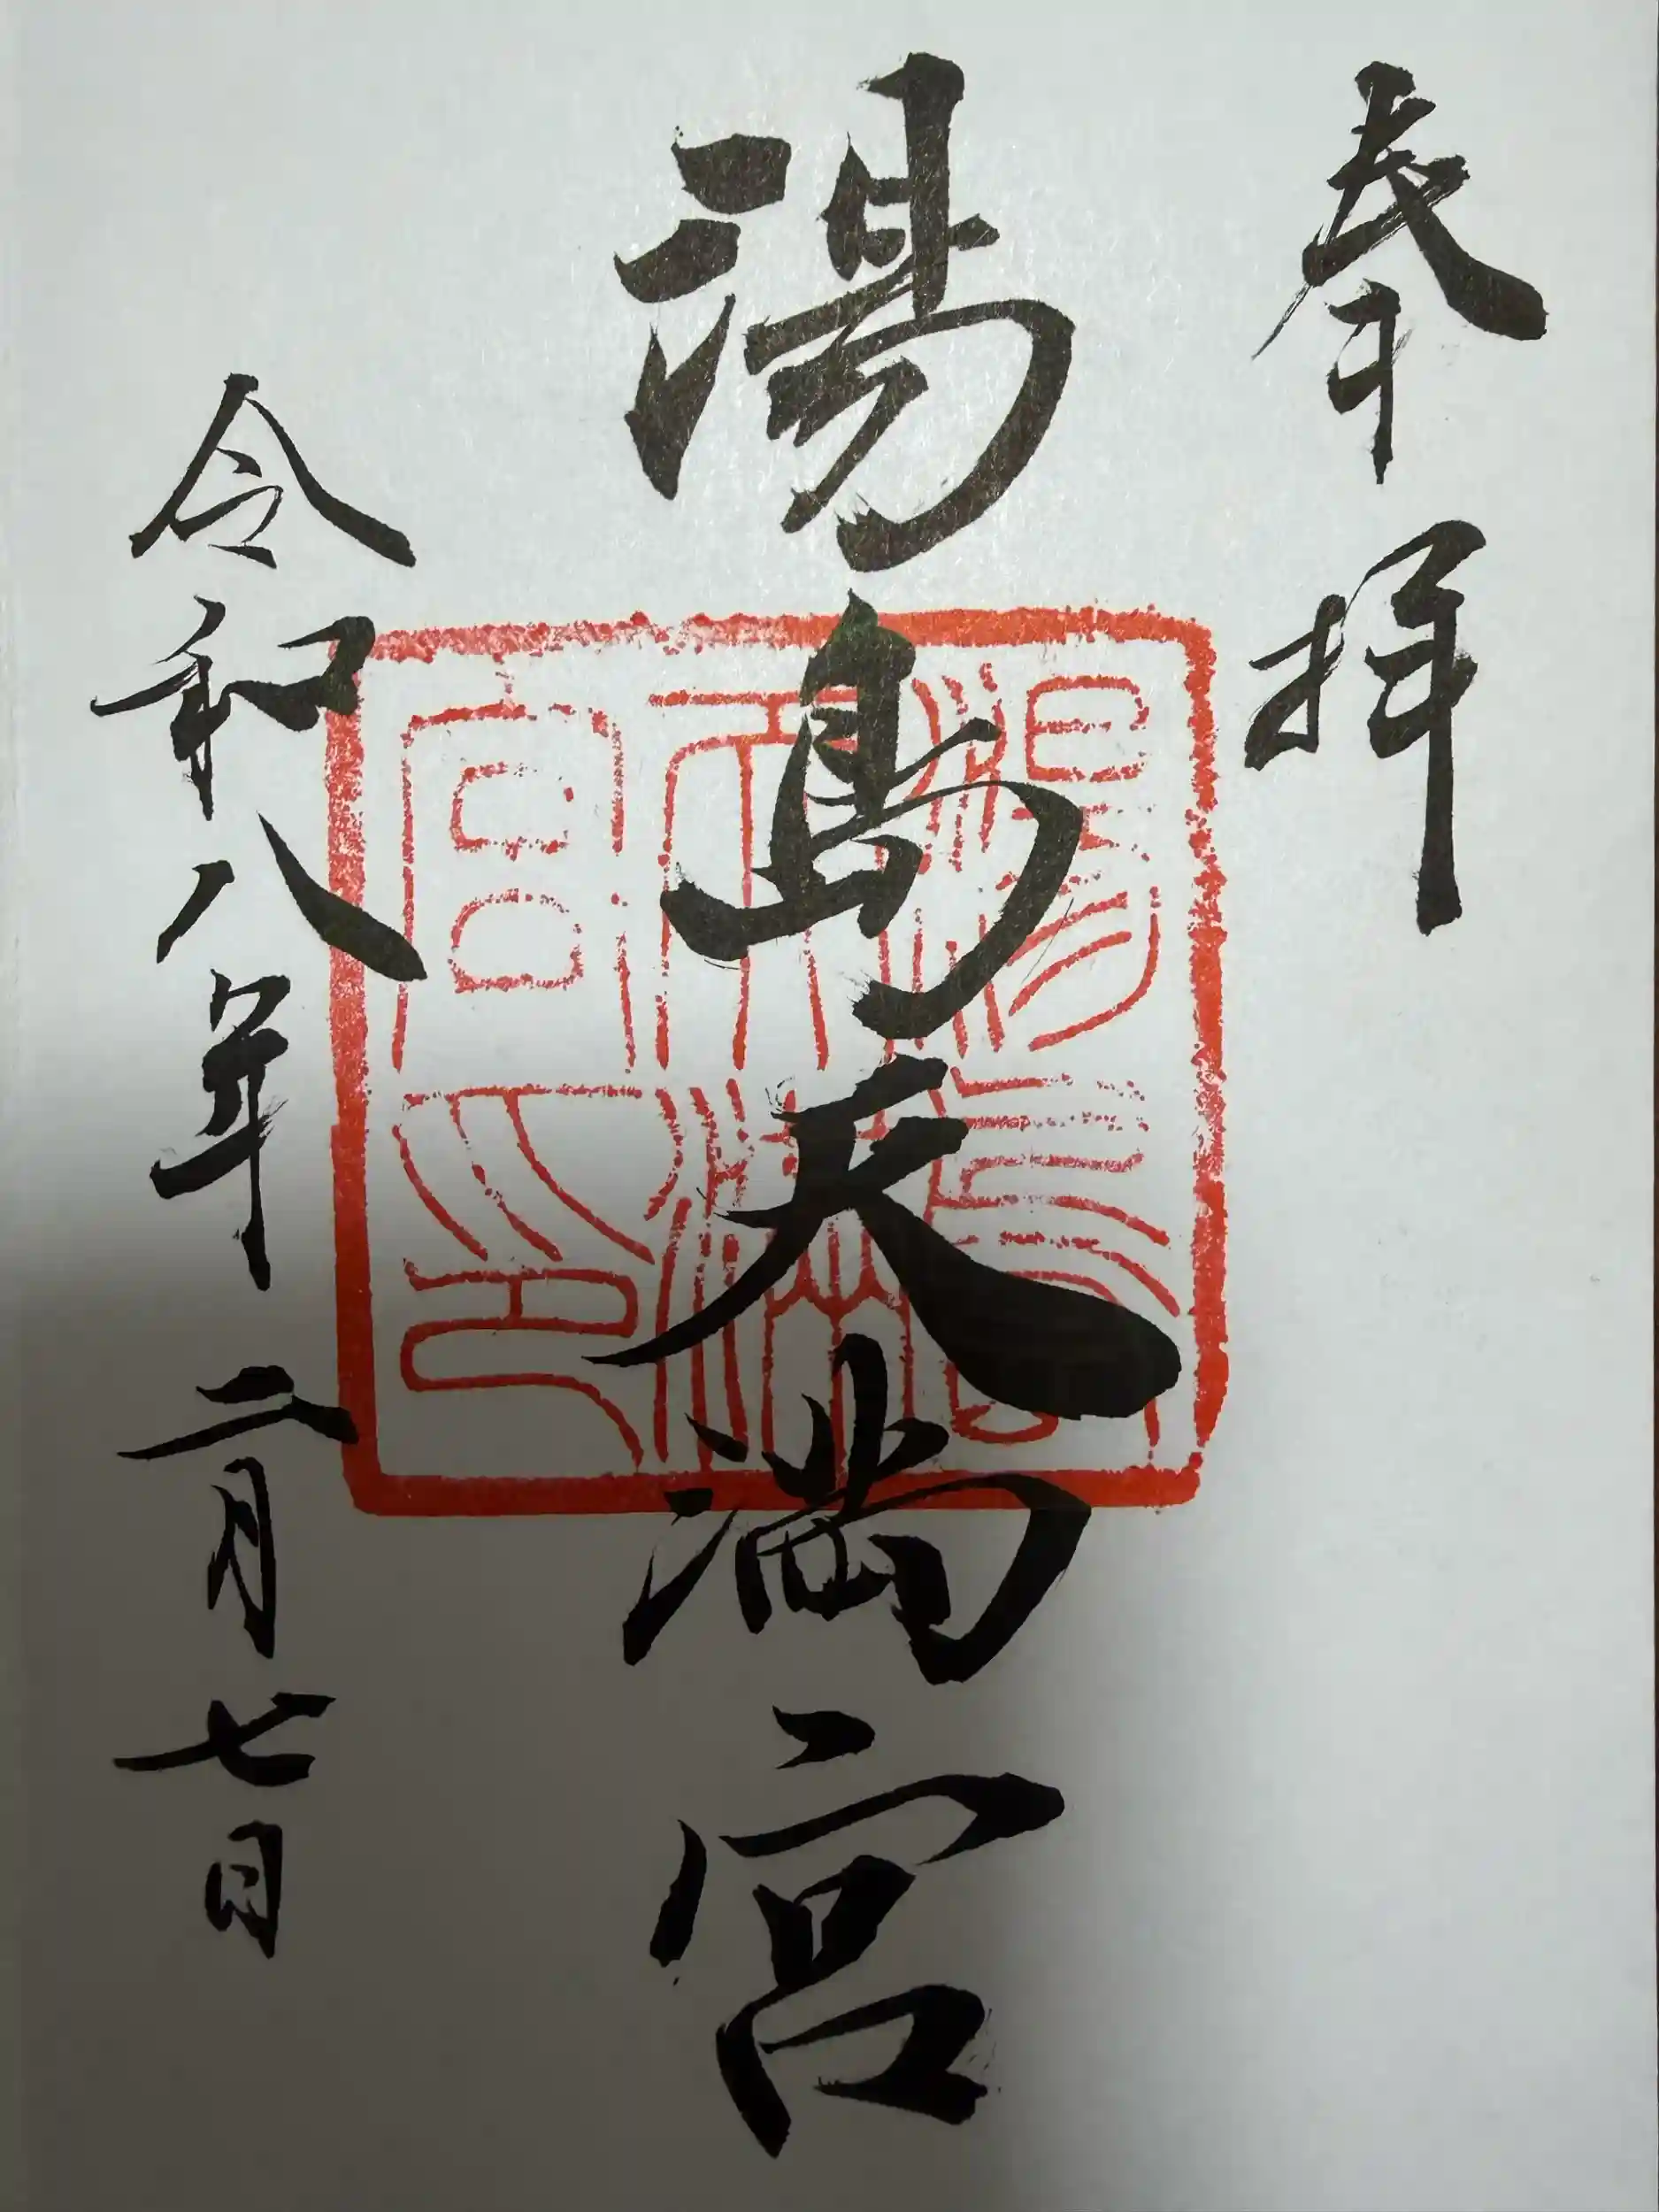 奉拝
湯島天満宮
湯島天満宮之印
令和八年二月七日